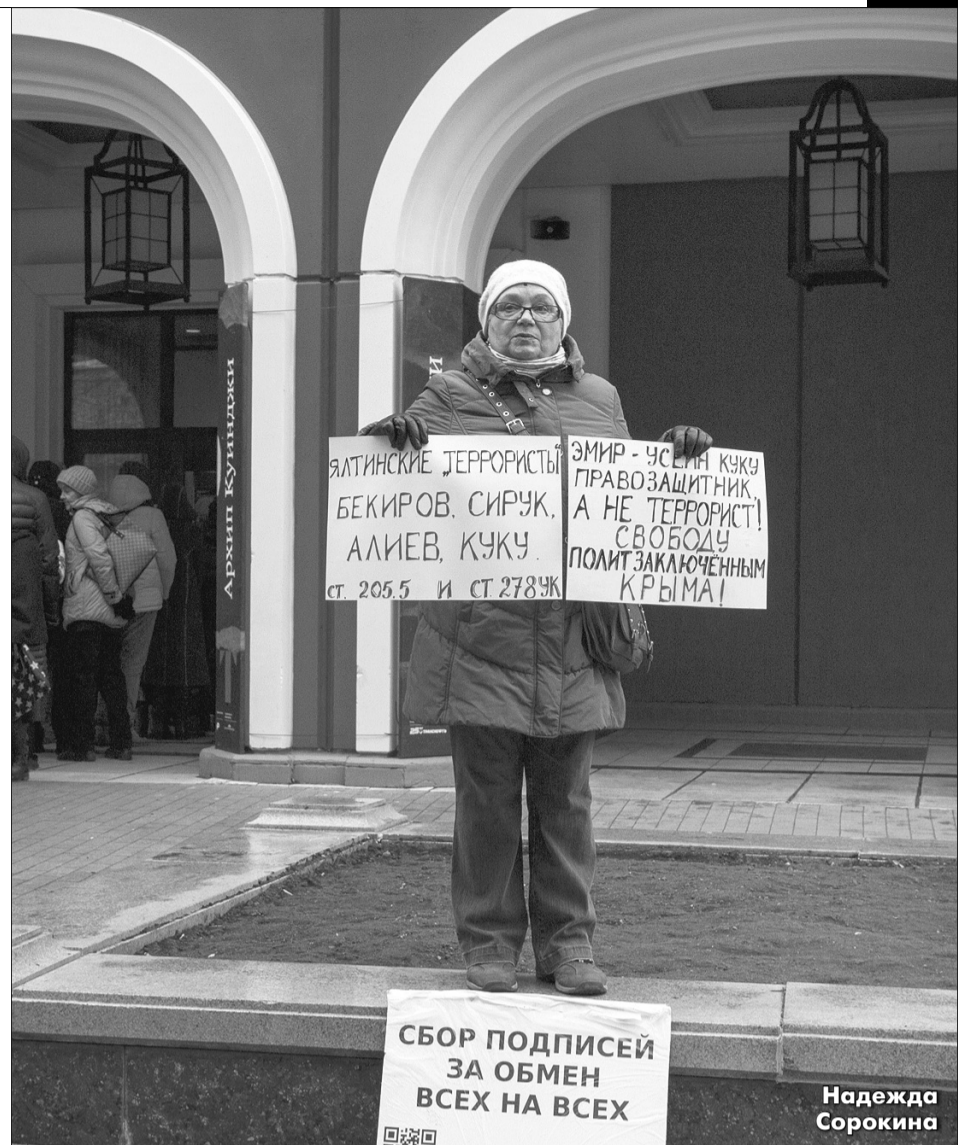 Архип Куинджи
ЯЛТИНСКИЕ „ТЕРРОРИСТЫ"
БЕКИРОВ, СИРУК,
АЛИЕВ, КУКУ.
СТ. 205.5 И СТ. 278 УК
ЭМИР - УСЕИН КУКУ
ПРАВОЗАЩИТНИК,
А НЕ ТЕРРОРИСТ!
СВОБОДУ
ПОЛИТЗАКЛЮЧЁННЫМ
КРЫМА!
СБОР ПОДПИСЕЙ
ЗА ОБМЕН
ВСЕХ НА ВСЕХ
Надежда
Сорокина